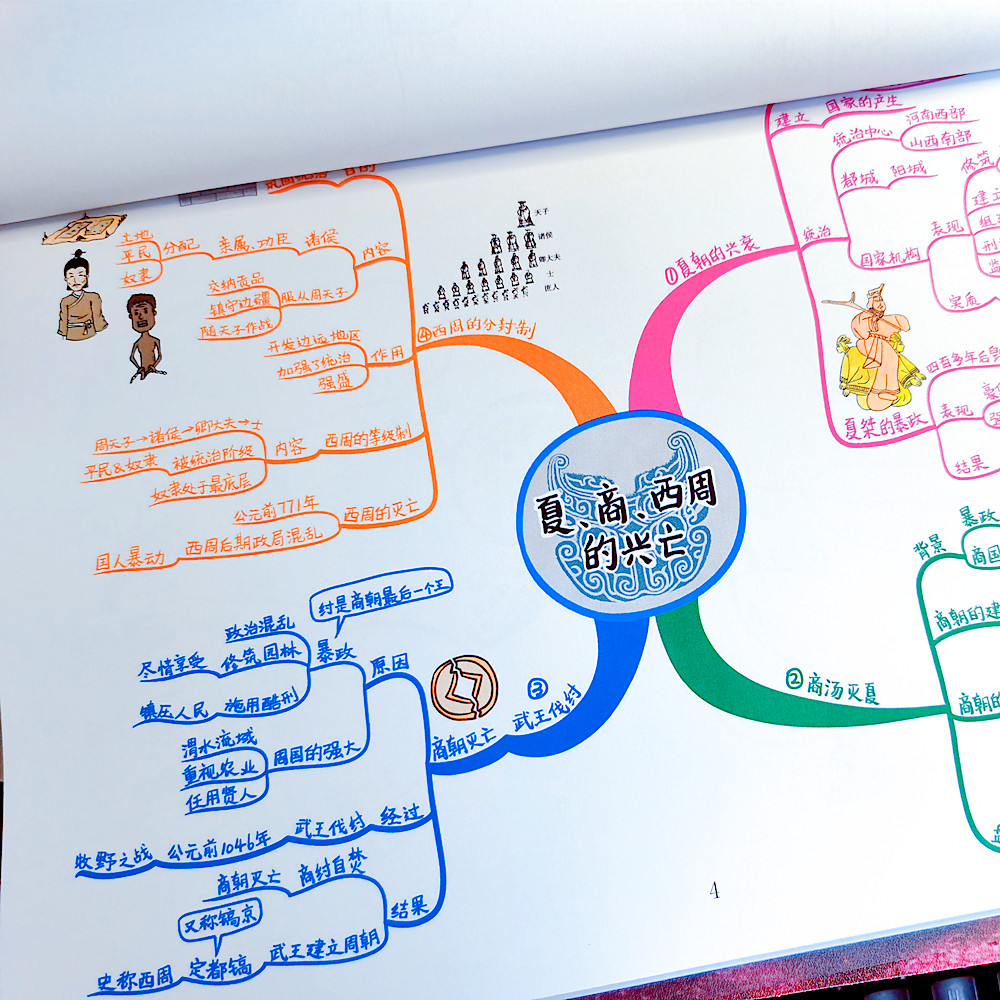 夏、商、西周
的兴亡
①夏朝的兴衰
建立 国家的产生
统治
统治中心
河南西部
山西南部
都城 阳城
国家机构
表现
修筑
建立
实质
夏桀的暴政
四百多年后
表现
结果
②商汤灭夏
背景
暴政
商国
商朝的建
商朝的
③武王伐纣
商朝灭亡
原因
暴政
纣是商朝最后一个王
政治混乱
修筑园林
尽情享受
施用酷刑
镇压人民
周国的强大
渭水流域
重视农业
任用贤人
经过
武王伐纣
公元前1046年
牧野之战
结果
商纣自焚
商朝灭亡
武王建立周朝
定都镐
又称镐京
史称西周
④西周的分封制
目的
内容
诸侯
亲属、功臣
分配
土地
平民
奴隶
服从周天子
交纳贡品
镇守边疆
随天子作战
作用
开发边远地区
加强了统治
强盛
西周的等级制
内容
周天子→诸侯→卿大夫→士
被统治阶级
平民&奴隶
奴隶处于最底层
西周的灭亡
公元前771年
西周后期政局混乱
国人暴动
天子
诸侯
卿大夫
士
庶人
4